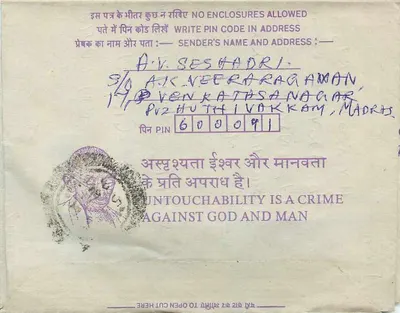 इस पत्र के भीतर कुछ न रखिए NO ENCLOSURES ALLOWED
पते में पिन कोड लिखें WRITE PIN CODE IN ADDRESS
प्रेषक का नाम और पता :— SENDER'S NAME AND ADDRESS :—
A.V. SESHADRI.
S/o A.K. VEERARAGAVAN,
VENKATESANAGAR,
PUZHUTHIVAKKAM, MADRAS
पिन PIN 600091
अस्पृश्यता ईश्वर और मानवता
के प्रति अपराध है।
UNTOUCHABILITY IS A CRIME
AGAINST GOD AND MAN
TO OPEN CUT HERE